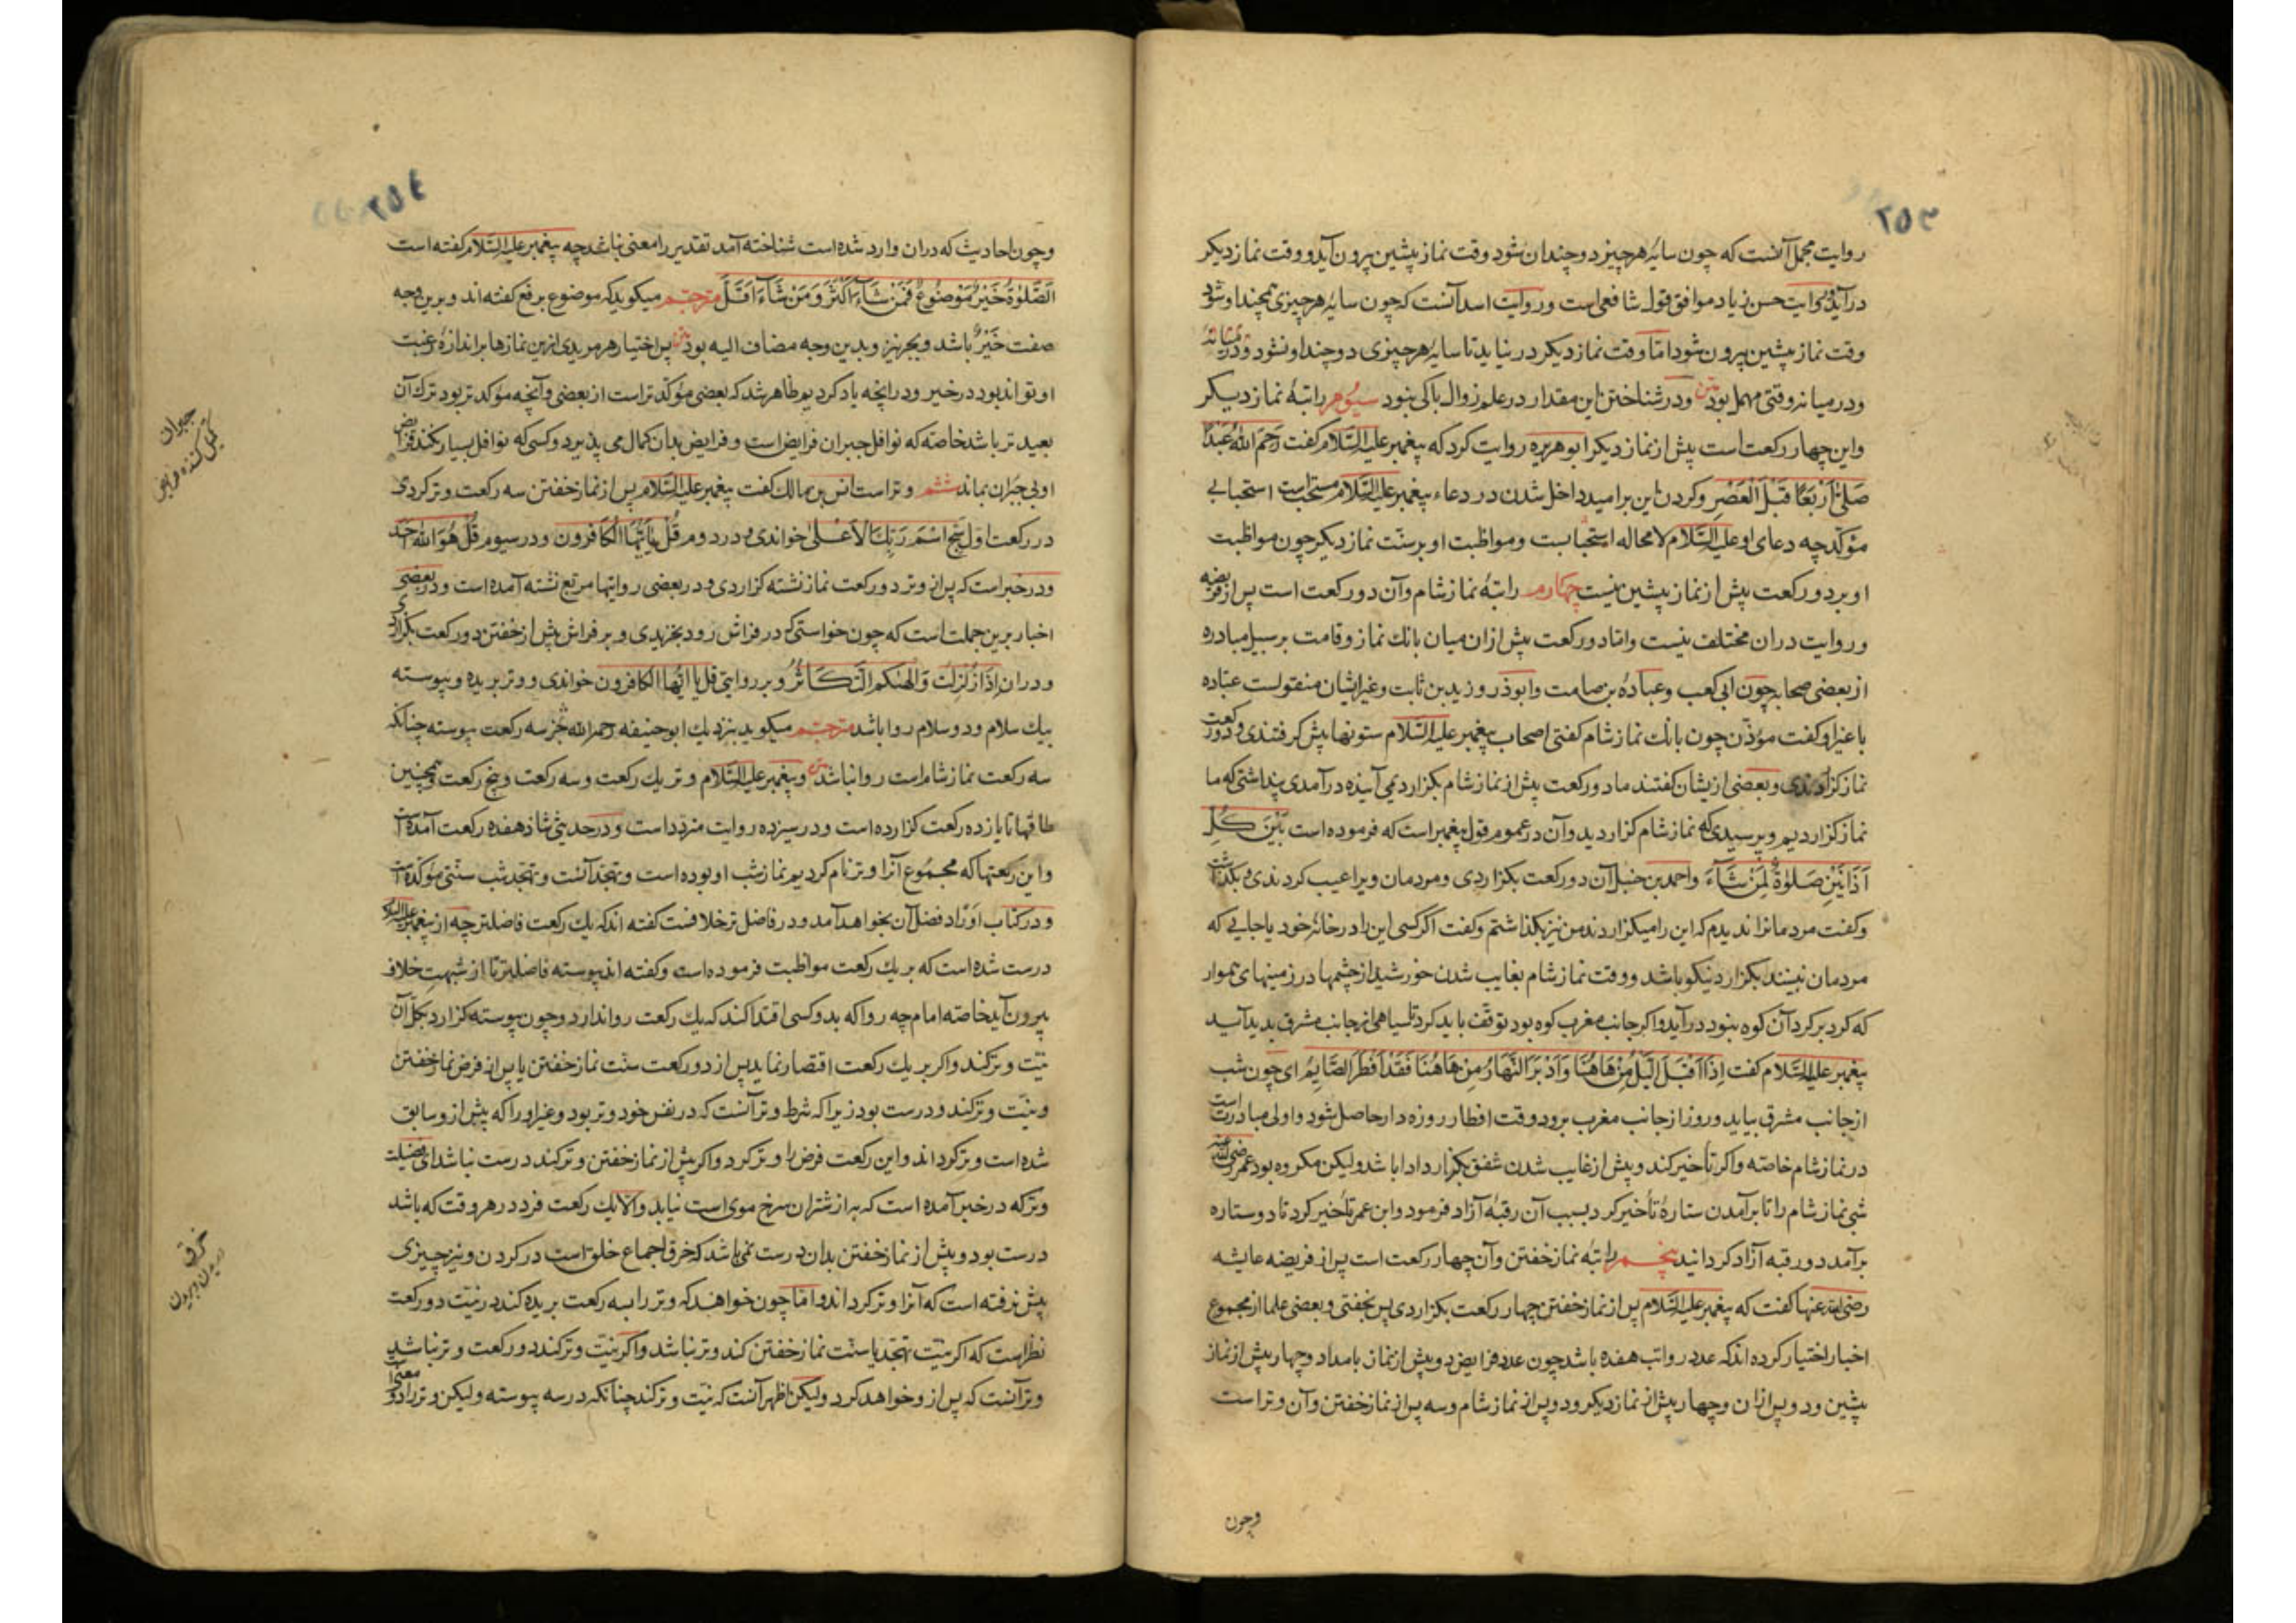 ۲۵۳
روایت مجمل آنست که چون سایۀ هر چیز دو چندان شود وقت نماز پیشین بیرون آید و وقت نماز دیکر
درآید و روایت حسن زیاد موافق قول شافعی است و روایت اسد آنست که چون سایۀ هر چیزی همچند او شود
وقت نماز پیشین بیرون شود امّا وقت نماز دیکر در نیاید تا سایۀ هر چیزی دو چند او نشود
و در میانه وقتی مهمل بود متن و در شناختن این مقدار در علم زوال باکی نبود سیوم راتبۀ نماز دیکر
و این چهار رکعت است پیش از نماز دیکر ابو هریره روایت کرد که پیغمبر علیه السّلام کفت رَحِمَ اللهُ عَبْدًا
صَلّیٰ اَرْبَعًا قَبْلَ الْعَصْرِ و کردن این بر امید داخل شدن در دعاء پیغمبر علیه السّلام مستحب است استحبابی
مؤکّد چه دعای او علیه السّلام لا محاله استجابست و مواظبت او بر سنّت نماز دیکر چون مواظبت
او بر دو رکعت پیش از نماز پیشین نیست چهارم راتبۀ نماز شام و آن دو رکعت است پس از فریضه
و روایت در ان مختلف نیست و امّا دو رکعت پیش از ان میان بانك نماز و قامت بر سبیل مبادره
از بعضی صحابه چون ابی کعب و عبادۀ بن صامت و ابوذر و زید بن ثابت و غیر ایشان منقولست عباده
یا غیر او کفت مؤذّن چون بانك نماز شام کفتی اصحاب پیغمبر علیه السّلام ستونها پیش کرفتندی و دو رکعت
نماز کزاردندی و بعضی ازیشان کفتند ما دو رکعت پیش از نماز شام بکزاردیمی آینده درآمدی پنداشتی که ما
نماز کزاردیم و پرسیدی که نماز شام کزاردید و آن در عموم قول پیغمبر است که فرموده است بَیْنَ کُلِّ
اَذَانَیْنِ صَلوٰةٌ لِمَنْ شَآءَ و احمد بن حنبل آن دو رکعت بکزاردی و مردمان ویرا عیب کردندی بکذاشت
و کفت مردمانرا ندیدم که این را میکزاردند من نیز بکذاشتم و کفت اکر کسی این را در خانۀ خود یا جایی که
مردمان نبینند بکزارد نیکو باشد و وقت نماز شام بغایب شدن خورشید از چشمها در زمینهای هموار
که کرد بر کرد آن کوه نبود درآید و اکر جانب مغرب کوه بود توقّف باید کرد تا سیاهی از جانب مشرق پدید آید
پیغمبر علیه السّلام کفت اِذَا اَقْبَلَ اللَّیْلُ مِنْ هَاهُنَا وَاَدْبَرَ النَّهَارُ مِنْ هَاهُنَا فَقَدْ اَفْطَرَ الصَّایِمُ ای چون شب
از جانب مشرق بیاید و روز از جانب مغرب برود وقت افطار روزه دار حاصل شود و اولی مبادرت است
در نماز شام خاصّه و اکر تأخیر کند و پیش از غایب شدن شفق بکزارد ادا باشد ولیکن مکروه بود عمر رضی الله عنه
شبی نماز شام را تا برآمدن ستارۀ تأخیر کرد بسبب آن رقبۀ آزاد فرمود و ابن عمر تأخیر کرد تا دو ستاره
برآمد دو رقبه آزاد کردانید پنجم راتبۀ نماز خفتن و آن چهار رکعت است پس از فریضه عایشه
رضی الله عنها کفت که پیغمبر علیه السّلام پس از نماز خفتن چهار رکعت بکزاردی پس بخفتی و بعضی علما از مجموع
اخبار اختیار کرده اند که عدد رواتب هفده باشد چون عدد فرایض دو پیش از نماز بامداد و چهار پیش از نماز
پیشین و دو پس از ان و چهار پیش از نماز دیکر و دو پس از نماز شام و سه پس از نماز خفتن و آن وتر است
وچون
۲۵٤
و چون احادیث که در ان وارد شده است شناخته آمد تقدیر را معنی نباشد چه پیغمبر علیه السّلام کفته است
اَلصَّلوٰةُ خَیْرٌ مَوْضُوعٌ فَمَنْ شَآءَ اَکْثَرَ وَمَنْ شَآءَ اَقَلَّ مترجم میکوید که موضوع برفع کفته اند و برین وجه
صفت خَیْرٌ باشد و بجر نیز و بدین وجه مضاف الیه بود متن پس اختیار هر مریدی ازین نمازها بر اندازۀ رغبت
او تواند بود در خیر و در انچه یاد کردیم ظاهر شد که بعضی مؤکّدتر است از بعضی و آنچه مؤکدتر بود ترك آن
بعیدتر باشد خاصّه که نوافل جبران فرایض است و فرایض بدان کمال می پذیرد و کسی که نوافل بسیار نکند فرایض
او بی جبران بماند ششم وتر است انس بن مالك کفت پیغمبر علیه السّلام پس از نماز خفتن سه رکعت وتر کردی
در رکعت اول سَبِّحِ اسْمَ رَبِّكَ الْاَعْلیٰ خواندی و در دوم قُلْ یٰاَیُّهَا الْکَافِرُونَ و در سیوم قُلْ هُوَ اللهُ اَحَدٌ
و در خبر است که پس از وتر دو رکعت نماز نشسته کزاردی و در بعضی روایتها مربّع نشسته آمده است و در بعضی
اخبار برین جملت است که چون خواستی که در فراش رود بخزیدی و بر فراش پیش از خفتن دو رکعت بکزاردی
و در ان اِذَا زُلْزِلَتْ وَ اَلْهٰیکُمُ التَّکَاثُرُ و بر روایتی قل یا ایّها الکافرون خواندی و وتر بریده و پیوسته
بیك سلام و دو سلام روا باشد مترجم میکوید بنزدیك ابو حنیفه رحمه الله جز سه رکعت پیوسته چنانکه
سه رکعت نماز شام است روا نباشد متن و پیغمبر علیه السّلام وتر یك رکعت و سه رکعت و پنج رکعت و همچنین
طاقها تا یازده رکعت کزارده است و در سیزده روایت متردّد است و در حدیثی شاذ هفده رکعت آمده است
و این رکعتها که مجموع آنرا وتر نام کردیم نماز شب او بوده است و تهجّد آنست و تهجّد شب سنّتی مؤکّد است
و در کتاب اوراد فضل آن بخواهد آمد و در فاضل تر خلافست کفته اند که یك رکعت فاضلتر چه از پیغمبر علیه السلام
درست شده است که بر یك رکعت مواظبت فرموده است و کفته اند پیوسته فاضلتر تا از شبهت خلاف
بیرون آید خاصّه امام چه روا که بدو کسی اقتدا کند که یك رکعت روا ندارد و چون پیوسته کزارد بکلّ آن
نیّت وتر کند و اکر بر یك رکعت اقتصار نماید پس از دو رکعت سنّت نماز خفتن یا پس از فرض نماز خفتن
و نیّت وتر کند و درست بود زیرا که شرط وتر آنست که در نفس خود وتر بود و غیر او را که پیش از و سابق
شده است وتر کرداند و این رکعت فرض را وتر کرد و اکر پیش از نماز خفتن وتر کند درست نباشد ای فضیلت
وتر که در خبر آمده است که به از شتران سرخ موی است نیابد و الّا یك رکعت فرد در هر وقت که باشد
درست بود و پیش از نماز خفتن بدان درست نمی باشد که خرق اجماع خلق است در کردن و نیز چیزی
پیش نرفته است که آنرا وتر کرداند و امّا چون خواهد که وتر را بسه رکعت بریده کند در نیّت دو رکعت
نظر است که اکر نیّت تهجّد یا سنّت نماز خفتن کند وتر نباشد و اکر نیّت وتر کند دو رکعت وتر نباشد
وتر آنست که پس از و خواهد کرد ولیکن اظهر آنست که نیّت وتر کند چنانکه در سه پیوسته ولیکن وتر را دو معنی است
جبران
خرق